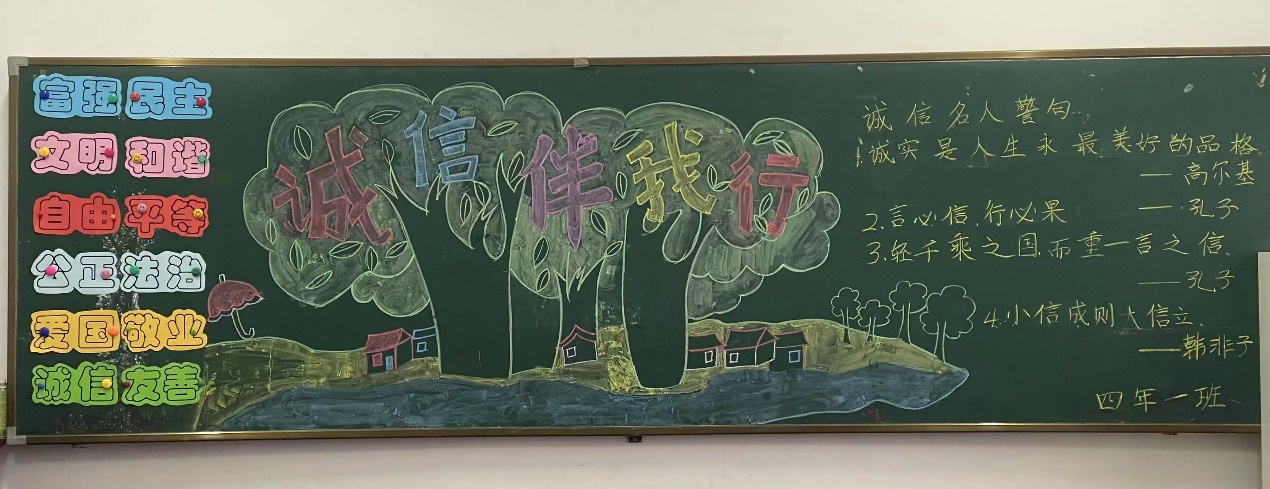 富强 民主
文明 和谐
自由 平等
公正 法治
爱国 敬业
诚信 友善
诚信伴我行
诚信名人警句
1.诚实是人生永最美好的品格
——高尔基
2.言必信,行必果
——孔子
3.轻千乘之国,而重一言之信。
——孔子
4.小信成则大信立。
——韩非子
四年一班